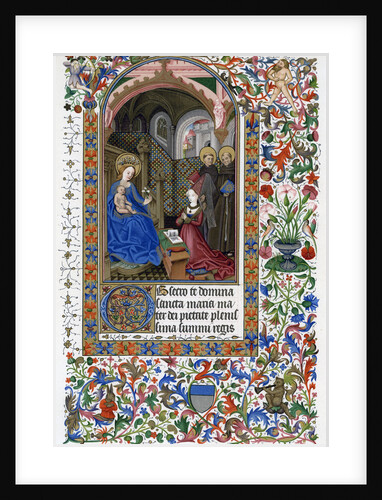 Obsecro te domina
sancta maria ma
ter dei pietate plenis
sima summi regis